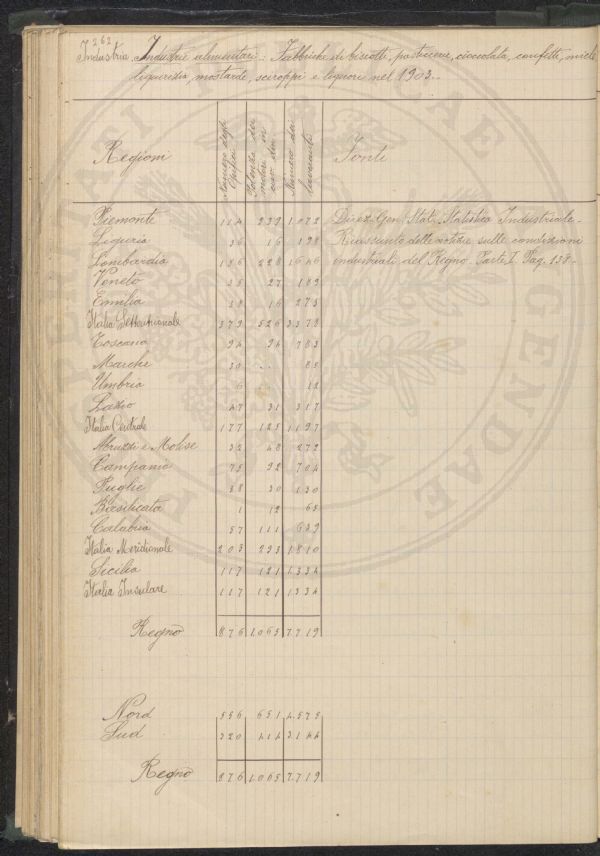 262
Industria. Industrie alimentari: Fabbriche di biscotti, pasticcerie, cioccolata, confetti, miele
liquirizia, mostarde, sciroppi e liquori nel 1903.-
Regioni Numero degli Opifici Potenza dei motori in cav. din. Numero dei lavoranti Fonti
Piemonte 114 239 1072 Direz. Gen. Stat. Statistica Industriale-
Liguria 36 16 198 Riassunto delle notizie sulle condizioni
Lombardia 156 228 1644 industriali del Regno. Parte I. Pag. 138-
Veneto 35 27 189
Emilia 38 16 275
Italia Settentrionale 379 526 3378
Toscana 94 94 783
Marche 30 .. 85
Umbria 6 12
Lazio 47 31 317
Italia Centrale 177 125 1197
Abruzzi e Molise 32 48 272
Campania 75 92 704
Puglie 38 30 130
Basilicata 1 12 65
Calabria 57 111 639
Italia Meridionale 203 293 1810
Sicilia 117 121 1334
Italia Insulare 117 121 1334
Regno 876 1.065 7.719
Nord 556 651 4.575
Sud 320 414 3.144
Regno 876 1.065 7.719